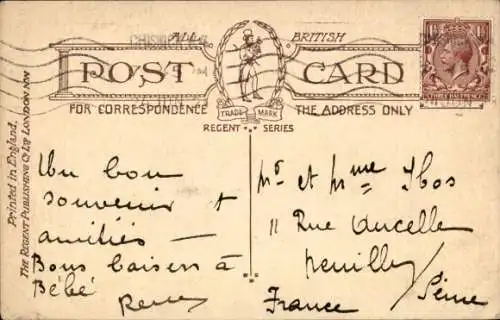 CHISWICK
ALL BRITISH
POST CARD
FOR CORRESPONDENCE THE ADDRESS ONLY
TRADE MARK
REGENT SERIES
Printed in England.
THE REGENT PUBLISHING Co Ltd LONDON NW
Un bon
souvenir +
amitiés —
Bons baisers à
Bébé
Mr et Mme Ibos
11 Rue Ancelle
Neuilly /
Seine
France